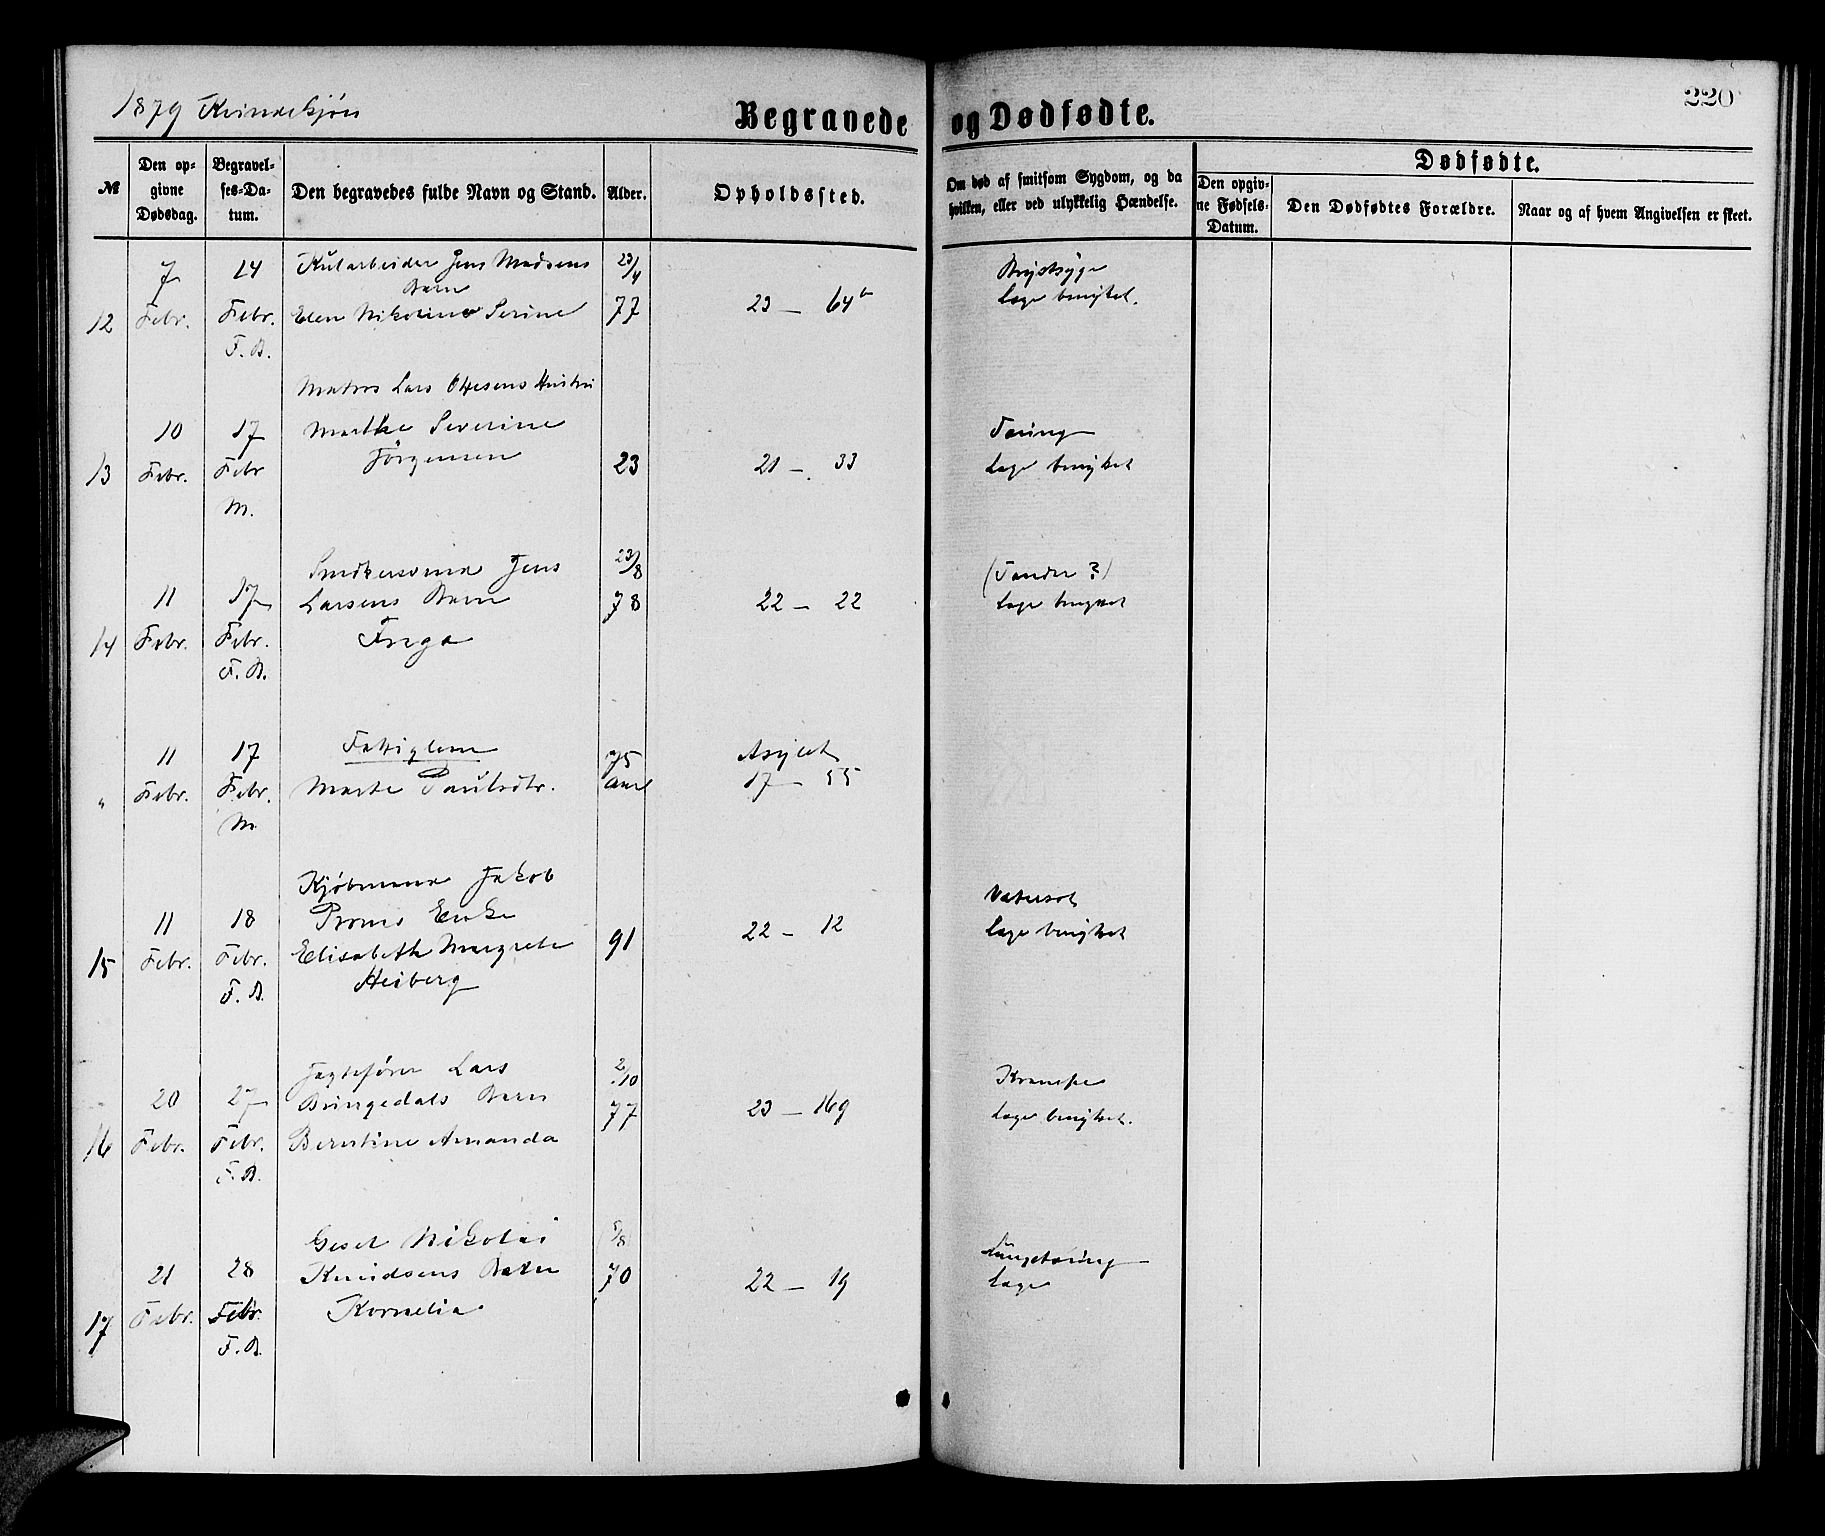 1879 Kvindekjön
Begravede og Dødfødte.
220
№
Den opgivne Dødsdag.
Begravelses-Datum.
Den begravedes fulde Navn og Stand.
Alder.
Opholdssted.
Om død af smitsom Sygdom, og da hvilken, eller ved ulykkelig Hændelse.
Dødfødte.
Den opgivne Fødsels-Datum.
Den Dødfødtes Forældre.
Naar og af hvem Angivelsen er skeet.
7 14 Kularbeider Jens Madsens 23/4 Brystsyge
Barn
12 Febr. Febr. Elen Nikoline Serine 77 23 – 64b Læge benyttet.
F. B.
Matros Lars Ottesens Hustru
10 17 Marthe Severine Tæring
13 Febr. Febr Jørgensen 23 21 – 33 Læge benyttet
M.
Snedkersvend Jens 23/8 (Tænder?)
11 17 Larsens Barn 78 22 – 22 Læge benyttet
14 Febr. Febr. Inga
F. B.
11 17 Fattiglem 75 Asylet
" Febr. Febr. Marte Paulsdtr. Aar 17 – 55
M.
Kjøbmand Jakob
11 18 Proms Enke Vatersot
15 Febr. Febr. Elisabeth Margrete 91 22 – 12 Læge benyttet
F. B. Heiberg
Jagtefører Lars 2/10 Krampe
20 27 Bringedals Barn 77 23 – 169 Læge benyttet.
16 Febr. Febr. Berntine Amanda
F. B.
Gesel Nikolai 5/8 Lungetæring
21 28 Knudsens Datter 70 22 – 19 Læge
17 Febr. Febr. Kornelia.
F. B.